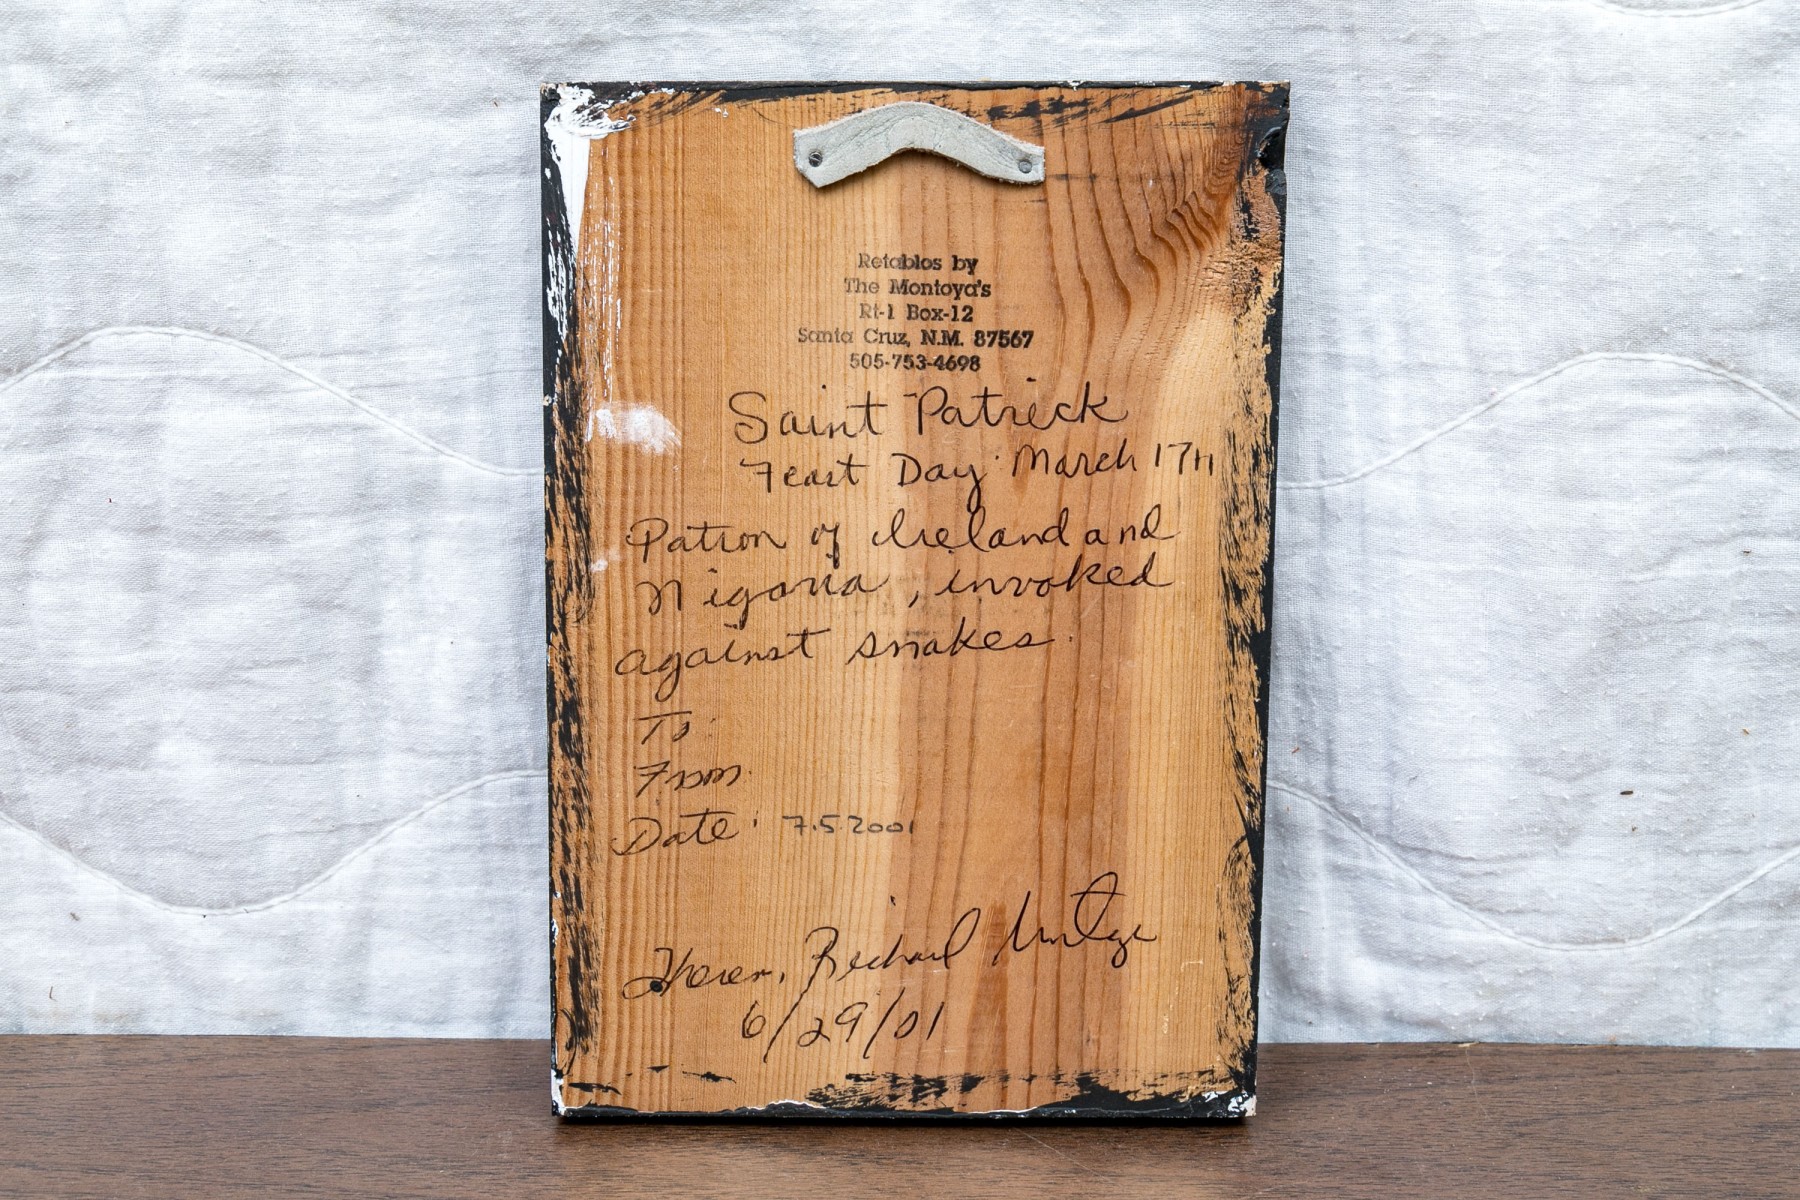 Retablos by
The Montoya's
Rt-1 Box-12
Santa Cruz, N.M. 87567
505-753-4698
Saint Patrick
Feast Day: March 17TH
Patron of Ireland and
Nigaria, invoked
against snakes.
To:
From:
Date: 7.5.2001
Richard
6/29/01